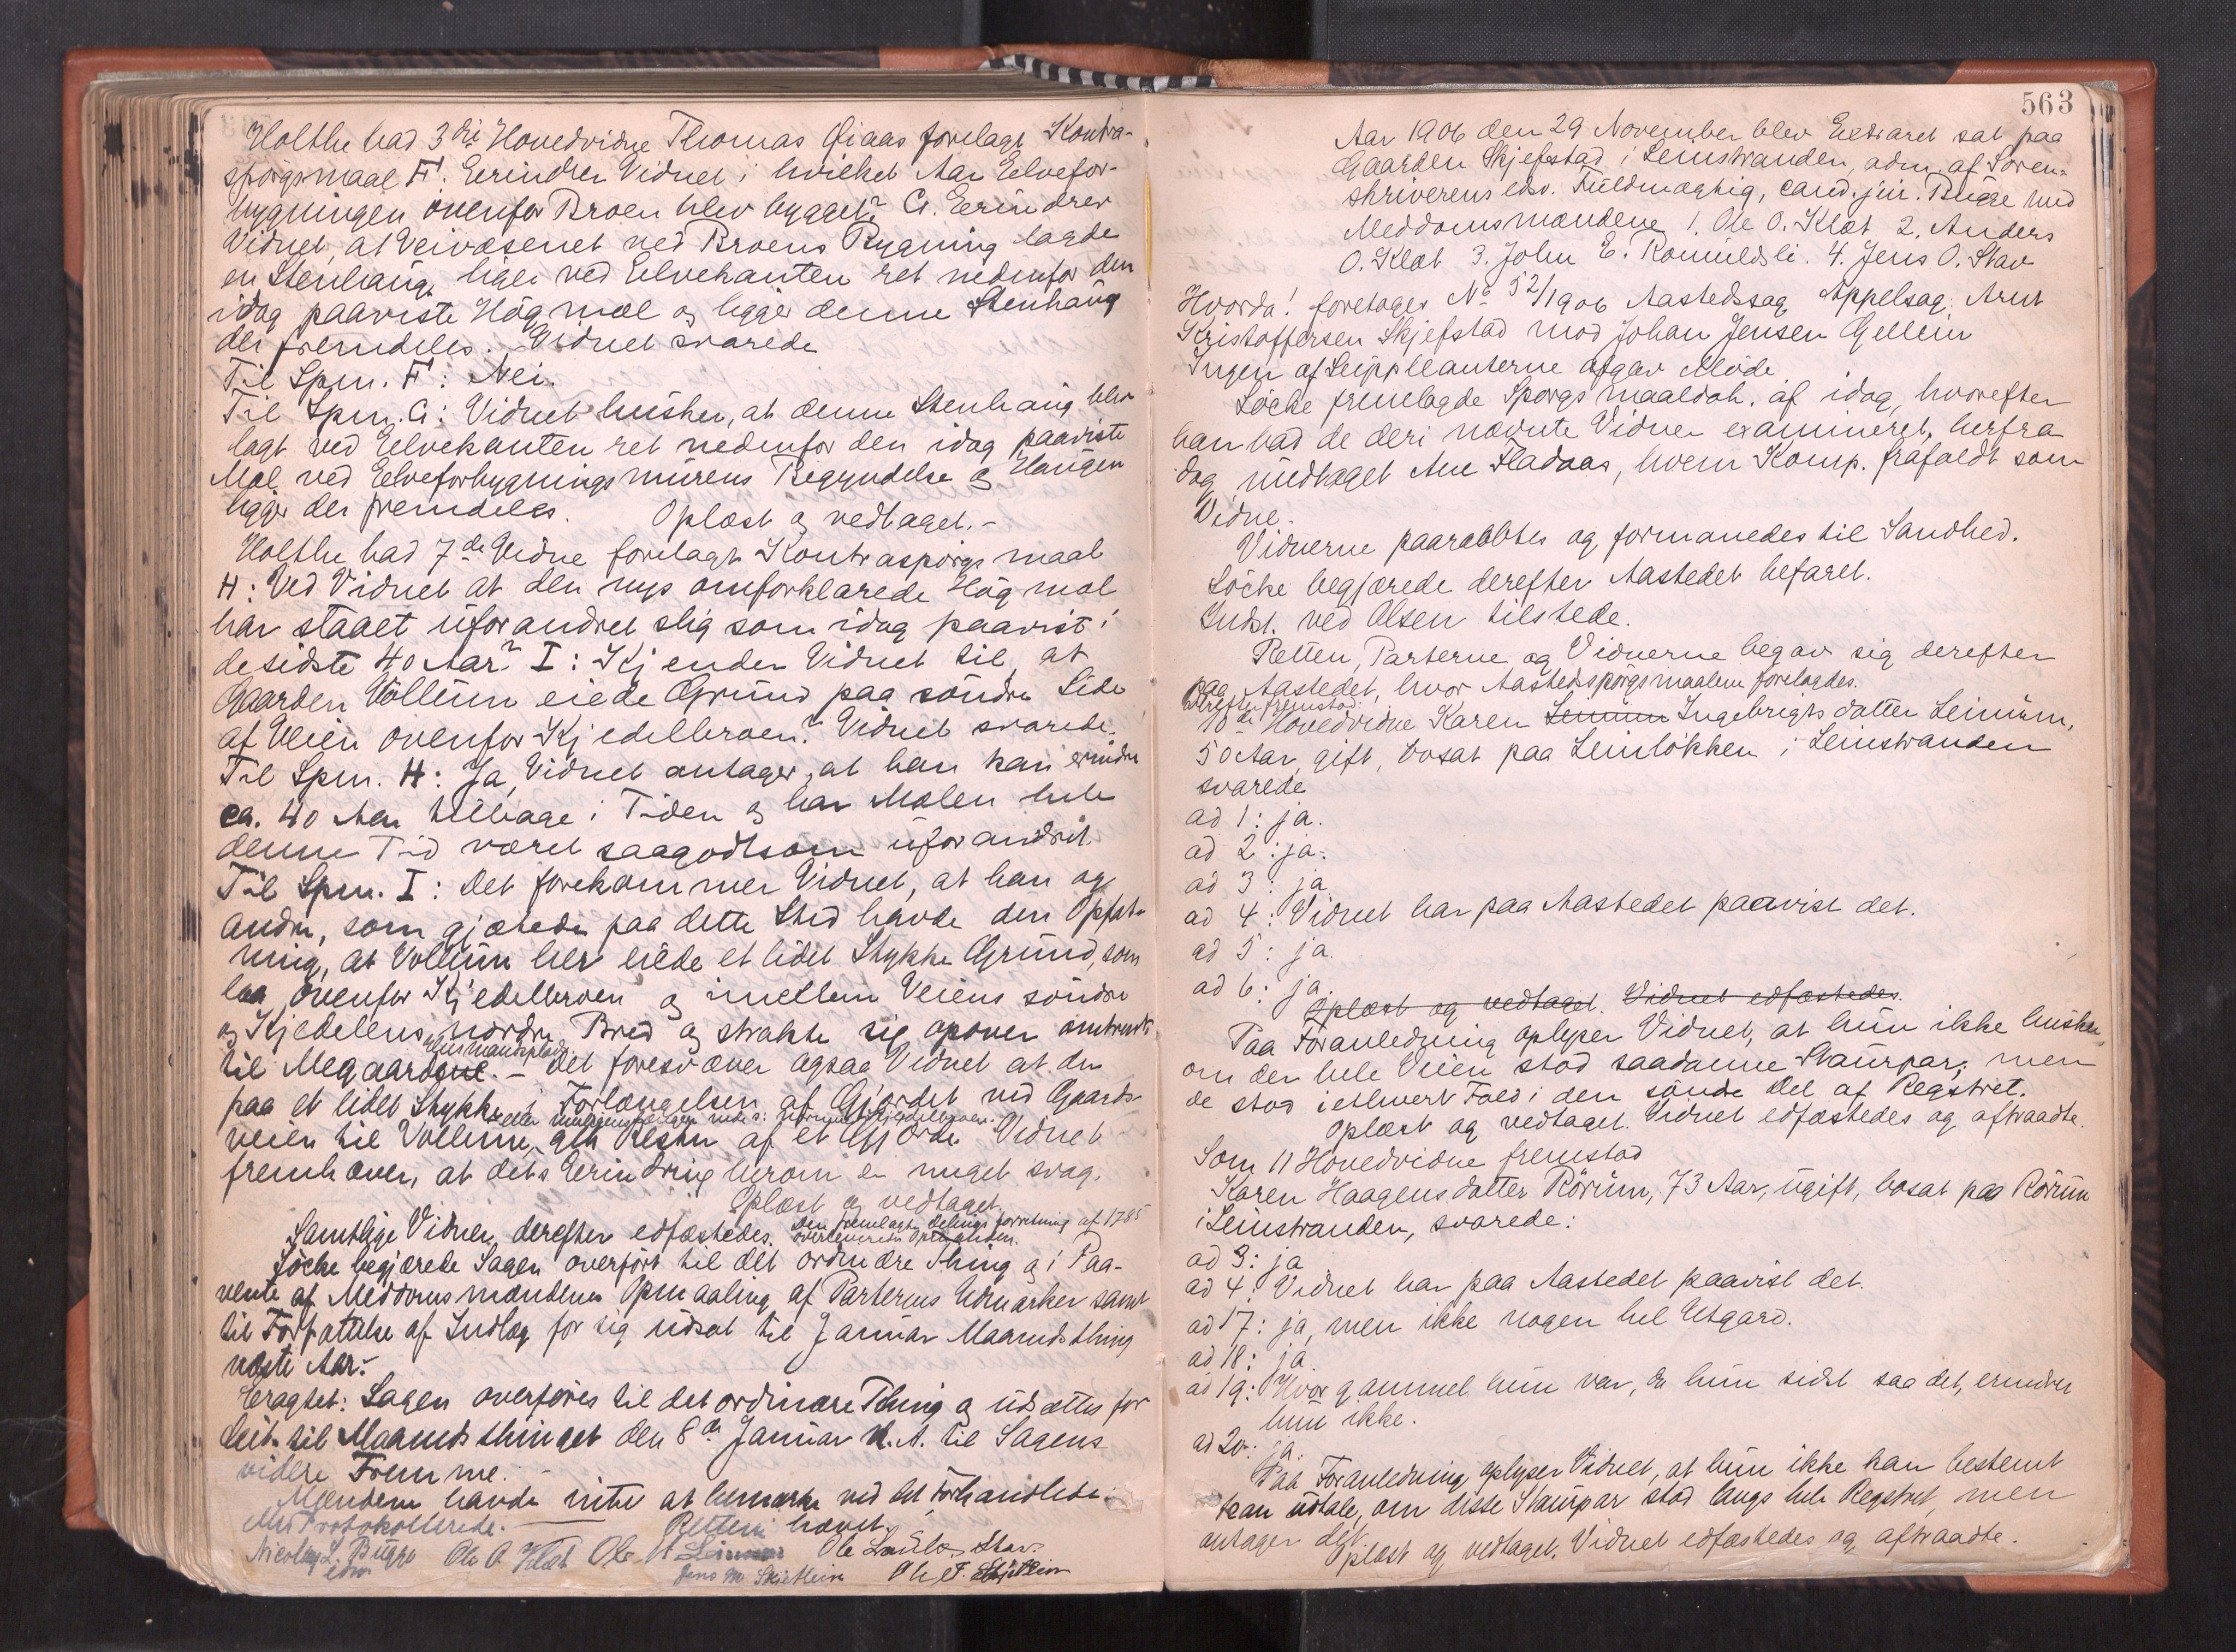 Holthe bad 3die Hovedvidne Thomas Qiaas forelagt Kontra-
spørgsmaal F. Erindrer Vidnet i hvilket Aar Elvefor-
bygningen ovenfor Broen blev bygget? G. Erindrer
Vidnet, at Veivæsenet ved Broens Bygning lagde
en Stenhaug lige ved Elvekanten ret nedenfor den
idag paaviste Høgmæl og ligger denne Stenhaug
der fremdeles. Vidnet svarede
Til Spm. F: Nei.
Til Spm. G: Vidnet husker, at denne Stenhaug blev
lagt ved Elvekanten ret nedenfor den idag paaviste
Mæl ved Elveforbygningsmurens Begyndelse og Haugen
ligger der fremdeles. Oplæst og vedtaget.-
Holthe bad 7de Vidne forelagt Kontraspørgsmaal
H: Ved Vidnet at den nys omforklarede Høgmæl
har staaet uforandret slig som idag paavist i
de sidste 40 Aar? I: Kjender Vidnet til, at
Gaarden Vollum eiede Grund paa søndre Side
af Veien ovenfor Kjedelbroen? Vidnet svarede:
Til Spm. H: Ja, Vidnet antager, at han kan erindre
ca. 40 Aar tilbage i Tiden og har Mælen hele
denne Tid været saagodtsom uforandret.
Til Spm. I: Det forekommer Vidnet, at han og
andre, som gjætede paa dette Sted havde den Opfat-
ning, at Vollum her eiede et lidet Stykke Grund, som
laa ovenfor Kjedelbroen og imellem Veiens søndre
og Kjedelens nordre Bred og strakte sig opover omtrent
husmandsplads
til Megaardene. - Det foresvæver ogsaa Vidnet at der
paa et lidet Stykke i Forlængelsen af Gjærdet ved Gaards-
veien til Vollum, gik Rester af et Gjærde Vidnet
fremhæver, at dets Erindring herom er meget svag.
Oplæst og vedtaget.
Samtlige Vidner derefter edfæstedes. Den fremlagte Delingsforretning af 1785
overleveredes Opmanden.
Løcke begjærede Sagen overført til det ordinære Thing og i Paa-
vente af Meddomsmændenes Opmaaling af Parternes Udmarker samt
til Forfattelse af Indlæg for sig udsat til Januar Maanedsthing
næste Aar.
Eragtet: Sagen overføres til det ordinære Thing og udsættes for
Leit. til Maanedsthinget den 8de Januar n. A. til Sagens
videre Fremme.
Mændene havde intet at bemærke ved det Forhandlede.
Protokollerede. Retten hævet.
Nicolay L. Bugge Ole O Klæt Ole Ole Stav.
edsv Jens M Skjetlein Ole F. Skjetlein
563
Aar 1906 den 29 November blev Extraret sat paa
Gaarden Skjefstad i Leinstranden, adm. af Soren-
skriverens edsv. Fuldmægtig, cand. jur. Bugge med
Meddomsmændene 1. Ole O. Klæt 2. Anders
O. Klæt 3. John E. Romuldsli. 4. Jens O. Stav
Hvorda! foretages No 52/1906 Aastedssag Appelsag. Arnt
Kristoffersen Skjefstad mod Johan Jensen Gellein
Ingen af Suppleanterne afgav Møde
Løcke fremlagde Spørgsmaaldok. af idag, hvorefter
han bad de deri nævnte Vidner examineret, herfra
dog undtaget Ane Fladaas, hvem Komp. frafaldt som
Vidne.
Vidnerne paaraabtes og formanedes til Sandhed.
Løcke begjærede derefter Aastedet befaret.
Indst. ved Olsen tilstede.
Retten, Parterne og Vidnerne begav sig derefter
paa Aastedet, hvor Aastedsspørgsmaalene forelagdes.
Derefter fremstod:
10de Hovedvidne Karen Leinum Ingebrigtsdatter Leinum,
50 Aar, gift, bosat paa Leinløkken i Leinstranden
svarede
ad 1: ja.
ad 2: ja.
ad 3: ja
ad 4: Vidnet har paa Aastedet paavist det.
ad 5: ja.
ad 6: ja.
Oplæst og vedtaget. Vidnet edfæstedes.
Paa Foranledning oplyser Vidnet, at hun ikke husker,
om der hele Veien stod saadanne Staurpar; men
de stod i ethvert Fald i den søndre Del af Regstret.
Oplæst og vedtaget. Vidnet edfæstedes og aftraadte.
Som 11 Hovedvidne fremstod
Karen Haagensdatter Rørum, 73 Aar, ugift, bosat paa Rørum
i Leinstranden, svarede:
ad 3: ja
ad 4: Vidnet har paa Aastedet paavist det.
ad 17: ja, men ikke nogen hel Utgard.
ad 18: ja.
ad 19: Hvor gammel hun var, da hun sidst saa det, erindrer
hun ikke.
ad 20: ja.
Paa Foranledning oplyser Vidnet, at hun ikke kan bestemt
kan udtale, om disse Staurpar stod langs hele Regstret, men
antager det.
Oplæst og vedtaget. Vidnet edfæstedes og aftraadte.